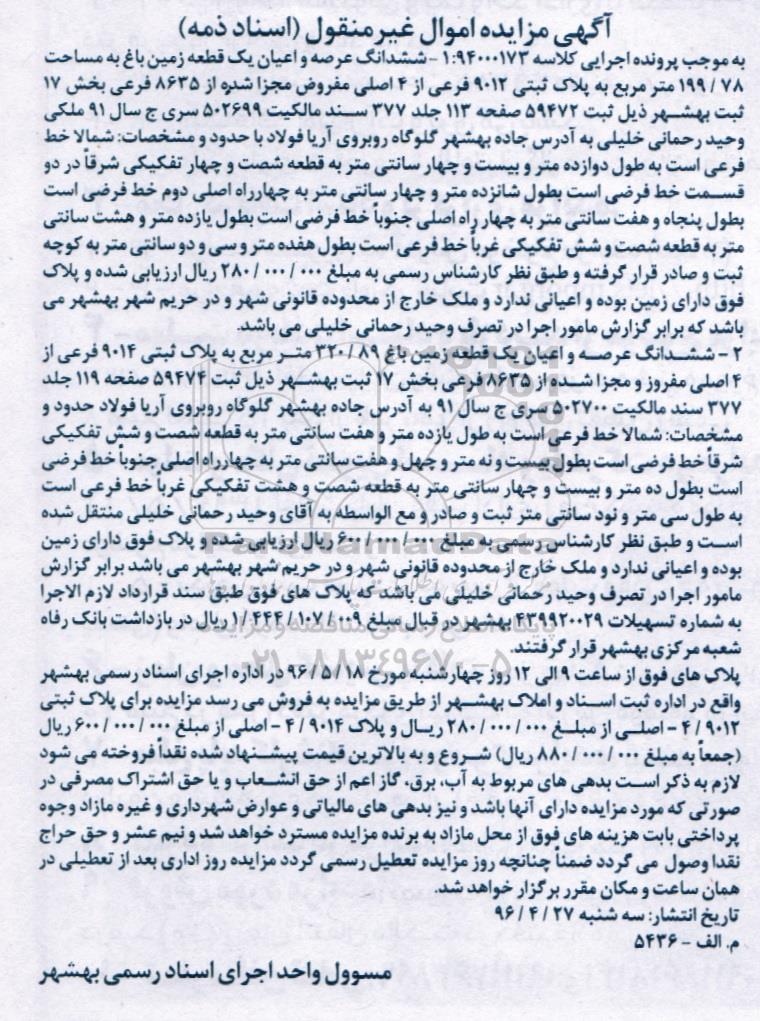 آگهی مزایده اموال غیرمنقول (اسناد ذمه)
به موجب پرونده اجرایی کلاسه ۹۴۰۰۰۱۷۳:۱ - ششدانگ عرصه و اعیان یک قطعه زمین باغ به مساحت
۷۸ / ۱۹۹ متر مربع به پلاک ثبتی ۹۰۱۲ فرعی از ۴ اصلی مفروض مجزا شده از ۸۶۳۵ فرعی بخش ۱۷
ثبت بهشهر ذیل ثبت ۵۹۴۷۲ صفحه ۱۱۳ جلد ۳۷۷ سند مالکیت ۵۰۲۶۹۹ سری ج سال ۹۱ ملکی
وحید رحمانی خلیلی به آدرس جاده بهشهر گلوگاه روبروی آریا فولاد با حدود و مشخصات: شمالا خط
فرعی است به طول دوازده متر و بیست و چهار سانتی متر به قطعه شصت و چهار تفکیکی شرقاً در دو
قسمت خط فرضی است بطول شانزده متر و چهار سانتی متر به چهارراه اصلی دوم خط فرضی است
بطول پنجاه و هفت سانتی متر به چهار راه اصلی جنوباً خط فرضی است بطول یازده متر و هشت سانتی
متر به قطعه شصت و شش تفکیکی غرباً خط فرعی است بطول هفده متر و سی و دو سانتی متر به کوچه
ثبت و صادر قرار گرفته و طبق نظر کارشناس رسمی به مبلغ ۰۰۰ / ۰۰۰ / ۲۸۰ ریال ارزیابی شده و پلاک
فوق دارای زمین بوده و اعیانی ندارد و ملک خارج از محدوده قانونی شهر و در حریم شهر بهشهر می
باشد که برابر گزارش مامور اجرا در تصرف وحید رحمانی خلیلی می باشد.
۲ - ششدانگ عرصه و اعیان یک قطعه زمین باغ ۸۹ / ۳۲۰ متر مربع به پلاک ثبتی ۹۰۱۴ فرعی از
۴ اصلی مفروز و مجزا شده از ۸۶۳۵ فرعی بخش ۱۷ ثبت بهشهر ذیل ثبت ۵۹۴۷۴ صفحه ۱۱۹ جلد
۳۷۷ سند مالکیت ۵۰۲۷۰۰ سری ج سال ۹۱ به آدرس جاده بهشهر گلوگاه روبروی آریا فولاد حدود و
مشخصات: شمالا خط فرعی است به طول یازده متر و هفت سانتی متر به قطعه شصت و شش تفکیکی
شرقاً خط فرضی است بطول بیست و نه متر و چهل و هفت سانتی متر به چهارراه اصلی جنوباً خط فرضی
است بطول ده متر و بیست و چهار سانتی متر به قطعه شصت و هشت تفکیکی غرباً خط فرعی است
به طول سی متر و نود سانتی متر ثبت و صادر و مع الواسطه به آقای وحید رحمانی خلیلی منتقل شده
است و طبق نظر کارشناس رسمی به مبلغ ۰۰۰ / ۰۰۰ / ۶۰۰ ریال ارزیابی شده و پلاک فوق دارای زمین
بوده و اعیانی ندارد و ملک خارج از محدوده قانونی شهر و در حریم شهر بهشهر می باشد برابر گزارش
مامور اجرا در تصرف وحید رحمانی خلیلی می باشد که پلاک های فوق طبق سند قرارداد لازم الاجرا
به شماره تسهیلات ۴۳۹۹۲۰۰۲۹ بهشهر در قبال مبلغ ۰۰۹ / ۱۰۷ / ۴۴۴ / ۱ ریال در بازداشت بانک رفاه
شعبه مرکزی بهشهر قرار گرفتند.
پلاک های فوق از ساعت ۹ الی ۱۲ روز چهارشنبه مورخ ۱۸ / ۵ / ۹۶ در اداره اجرای اسناد رسمی بهشهر
واقع در اداره ثبت اسناد و املاک بهشهر از طریق مزایده به فروش می رسد مزایده برای پلاک ثبتی
۹۰۱۲ / ۴ - اصلی از مبلغ ۰۰۰ / ۰۰۰ / ۲۸۰ ریال و پلاک ۹۰۱۴ / ۴ - اصلی از مبلغ ۰۰۰ / ۰۰۰ / ۶۰۰ ریال
(جمعاً به مبلغ ۰۰۰ / ۰۰۰ / ۸۸۰ ریال) شروع و به بالاترین قیمت پیشنهاد شده نقداً فروخته می شود
لازم به ذکر است بدهی های مربوط به آب، برق، گاز اعم از حق انشعاب و یا حق اشتراک مصرفی در
صورتی که مورد مزایده دارای آنها باشد و نیز بدهی های مالیاتی و عوارض شهرداری و غیره مازاد وجوه
پرداختی بابت هزینه های فوق از محل مازاد به برنده مزایده مسترد خواهد شد و نیم عشر و حق حراج
نقدا وصول می گردد ضمناً چنانچه روز مزایده تعطیل رسمی گردد مزایده روز اداری بعد از تعطیلی در
همان ساعت و مکان مقرر برگزار خواهد شد.
تاریخ انتشار: سه شنبه ۲۷ / ۴ / ۹۶
م. الف - ۵۴۳۶
مسوول واحد اجرای اسناد رسمی بهشهر
ParsNamadData
۰۲۱-۸۸۳۴۹۶۷۰-۵